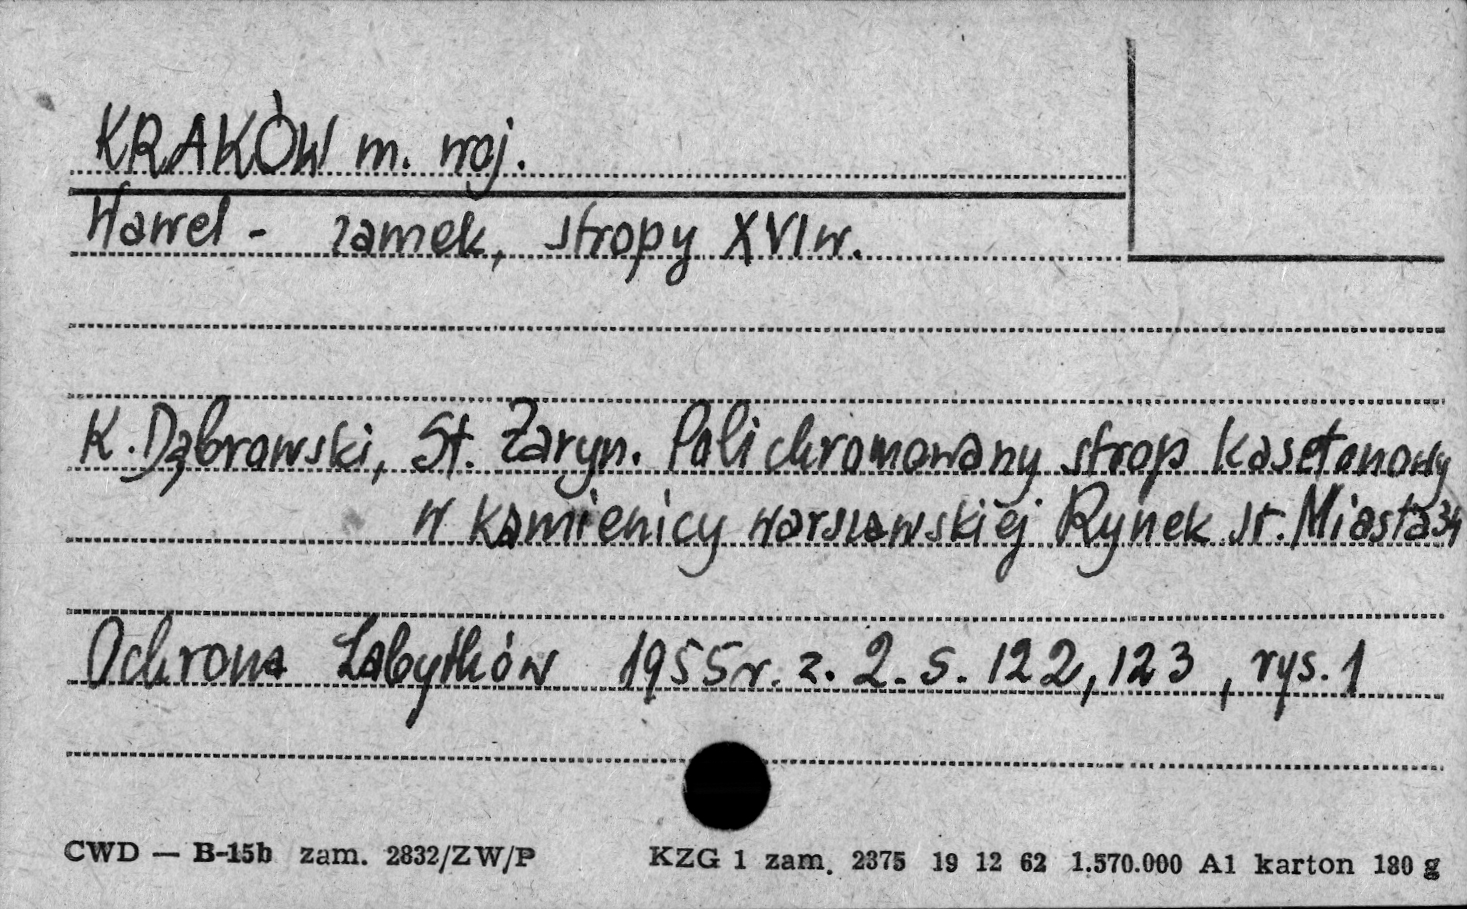 KRAKÓW m. woj.
Wawel - zamek, stropy XVI w.
K. Dąbrowski, St. Żaryn. Polichromowany strop kasetonowy
w kamienicy warszawskiej Rynek St. Miasta 34
Ochrona Zabytków 1955 r. z. 2. s. 122, 123, rys. 1
CWD — B-15b zam. 2832/ZW/P KZG 1 zam. 2375 19 12 62 1.570.000 A1 karton 180 g